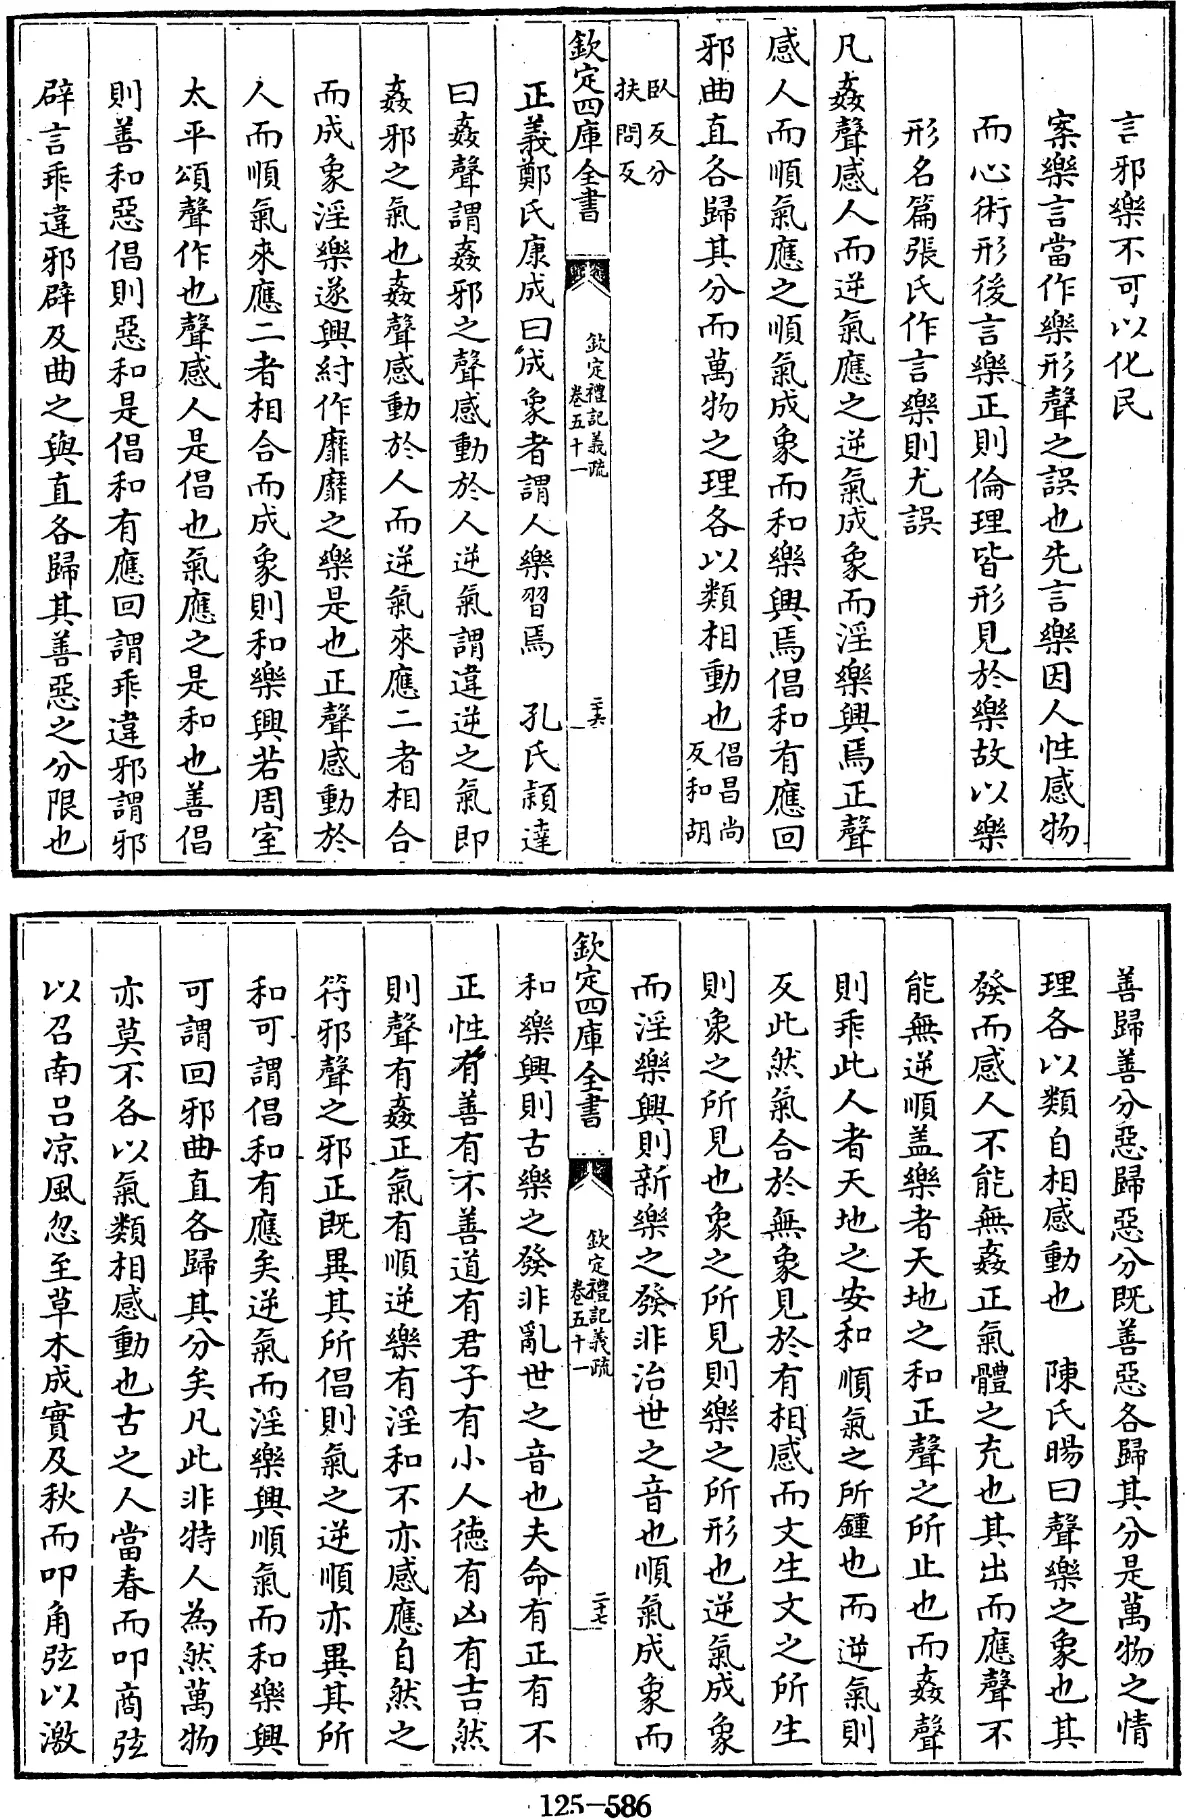 言邪樂不可以化民
案樂言當作樂形聲之誤也先言樂因人性感物
而心術形後言樂正則倫理皆形見於樂故以樂
形名篇張氏作言樂則尤誤
凡姦聲感人而逆氣應之逆氣成象而淫樂興焉正聲
感人而順氣應之順氣成象而和樂興焉倡和有應回
邪曲直各歸其分而萬物之理各以類相動也倡昌尚
反和胡
臥反分
扶問反
欽定四庫全書
欽定禮記義疏
卷五十一
二十六
正義鄭氏康成曰成象者謂人樂習焉 孔氏穎達
曰姦聲謂姦邪之聲感動於人逆氣謂違逆之氣即
姦邪之氣也姦聲感動於人而逆氣來應二者相合
而成象淫樂遂興紂作靡靡之樂是也正聲感動於
人而順氣來應二者相合而成象則和樂興若周室
太平頌聲作也聲感人是倡也氣應之是和也善倡
則善和惡倡則惡和是倡和有應回謂乖違邪謂邪
辟言乖違邪辟及曲之與直各歸其善惡之分限也
善歸善分惡歸惡分既善惡各歸其分是萬物之情
理各以類自相感動也 陳氏暘曰聲樂之象也其
發而感人不能無姦正氣體之充也其出而應聲不
能無逆順盖樂者天地之和正聲之所止也而姦聲
則乖此人者天地之安和順氣之所鍾也而逆氣則
反此然氣合於無象見於有相感而文生文之所生
則象之所見也象之所見則樂之所形也逆氣成象
而淫樂興則新樂之發非治世之音也順氣成象而
欽定四庫全書
欽定禮記義疏
卷五十一
二十七
和樂興則古樂之發非亂世之音也夫命有正有不
正性有善有不善道有君子有小人德有凶有吉然
則聲有姦正氣有順逆樂有淫和不亦感應自然之
符邪聲之邪正既異其所倡則氣之逆順亦異其所
和可謂倡和有應矣逆氣而淫樂興順氣而和樂興
可謂回邪曲直各歸其分矣凡此非特人為然萬物
亦莫不各以氣類相感動也古之人當春而叩商弦
以召南呂凉風忽至草木成實及秋而叩角弦以激
125-586